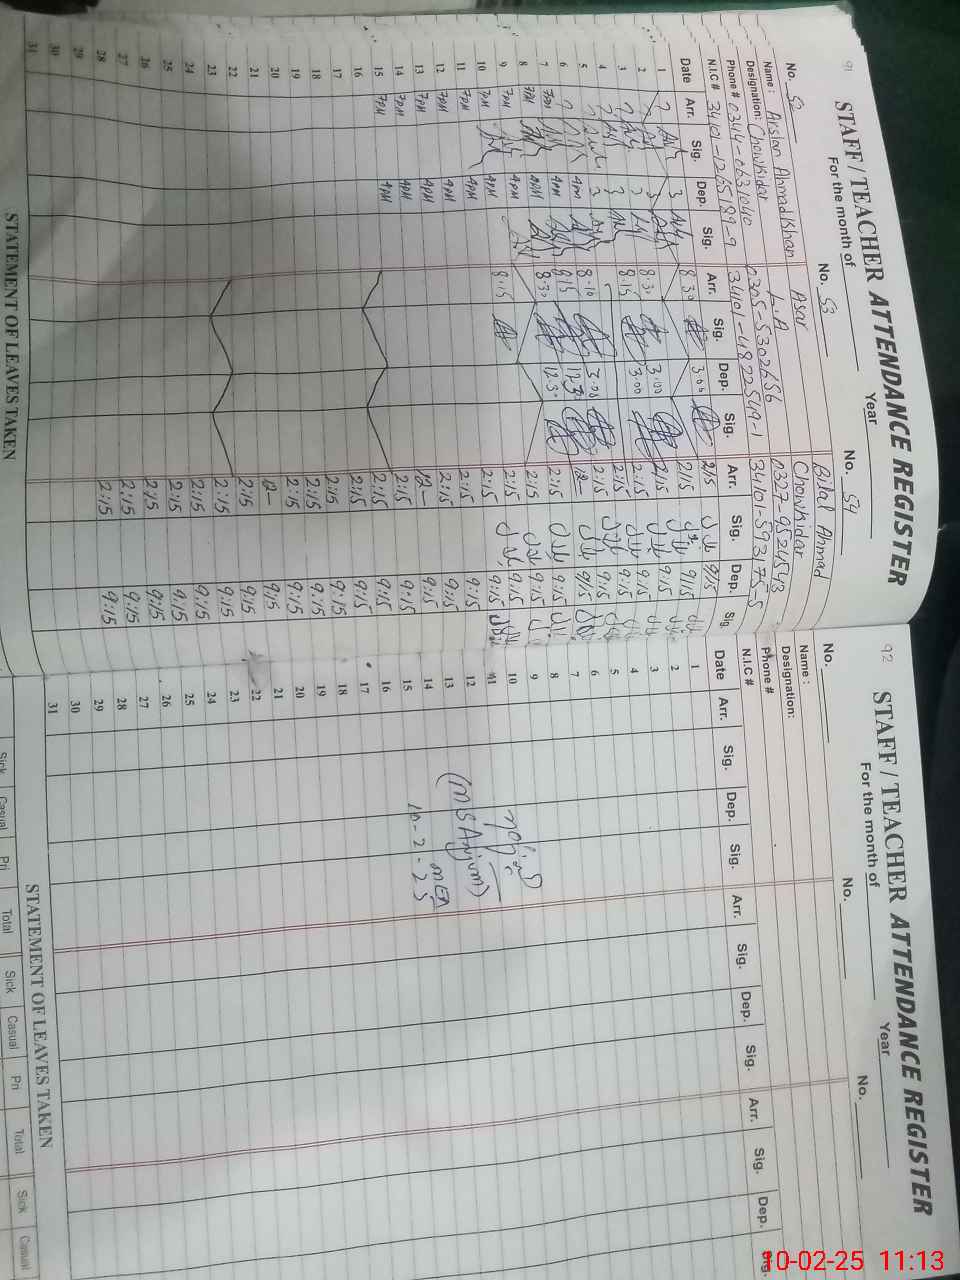 91
STAFF / TEACHER ATTENDANCE REGISTER
For the month of Year
No. 52 No. 53 No. 54
Name: Arslan Ahmad Khan Asar Bilal Ahmad
Designation: Chowkidar L.A Chowkidar
Phone # 0344-0631040 0305-5302656 0327-9524543
N.I.C # 34101-1265189-9 34101-4822549-1 34101-5931755-5
Date Arr. Sig. Dep. Sig. Arr. Sig. Dep. Sig. Arr. Sig. Dep. Sig.
1 8.30 3.00 2/15 9/15
2 8.30 3.00 2/15 9/15
3 8.15 3.00 2:15 9:15
4 2:15 9:15
5 8.10 3.00 2:15 9:15
6 8.15 12.30 12- 9/15
7 7PM 4PM 8.30 12.30 2:15 9:15
8 7PM 4PM 2:15 9:15
9 7PM 4PM 8.15 2:15 9:15
10 7PM 4PM 2:15 9:15
11 7PM 4PM 2:15 9:15
12 7PM 4PM 2:15 9:15
13 7PM 4PM 12- 9:15
14 7PM 4PM 2:15 9:15
15 7PM 4PM 2:15 9:15
16 2:15 9:15
17 2:15 9:15
18 2:15 9:15
19 2:15 9:15
20 12- 9:15
21 2:15 9:15
22 2:15 9:15
23 2:15 9:15
24 2:15 9:15
25 2:15 9:15
26 2:15 9:15
27 2:15 9:15
28 2:15 9:15
29
30
31
STATEMENT OF LEAVES TAKEN
92
STAFF / TEACHER ATTENDANCE REGISTER
For the month of Year
No. No. No.
Name:
Designation:
Phone #
N.I.C #
Date Arr. Sig. Dep. Sig. Arr. Sig. Dep. Sig. Arr. Sig. Dep. Sig.
1
2
3
4
5
6
7
8
9
10
11
12
13
14
15
16
17
18
19
20
21
22
23
24
25
26
27
28
29
30
31
(MS Anjum)
MEA
10-2-25
STATEMENT OF LEAVES TAKEN
Sick Casual Pri Total Sick Casual Pri Total Sick Casual
10-02-25 11:13